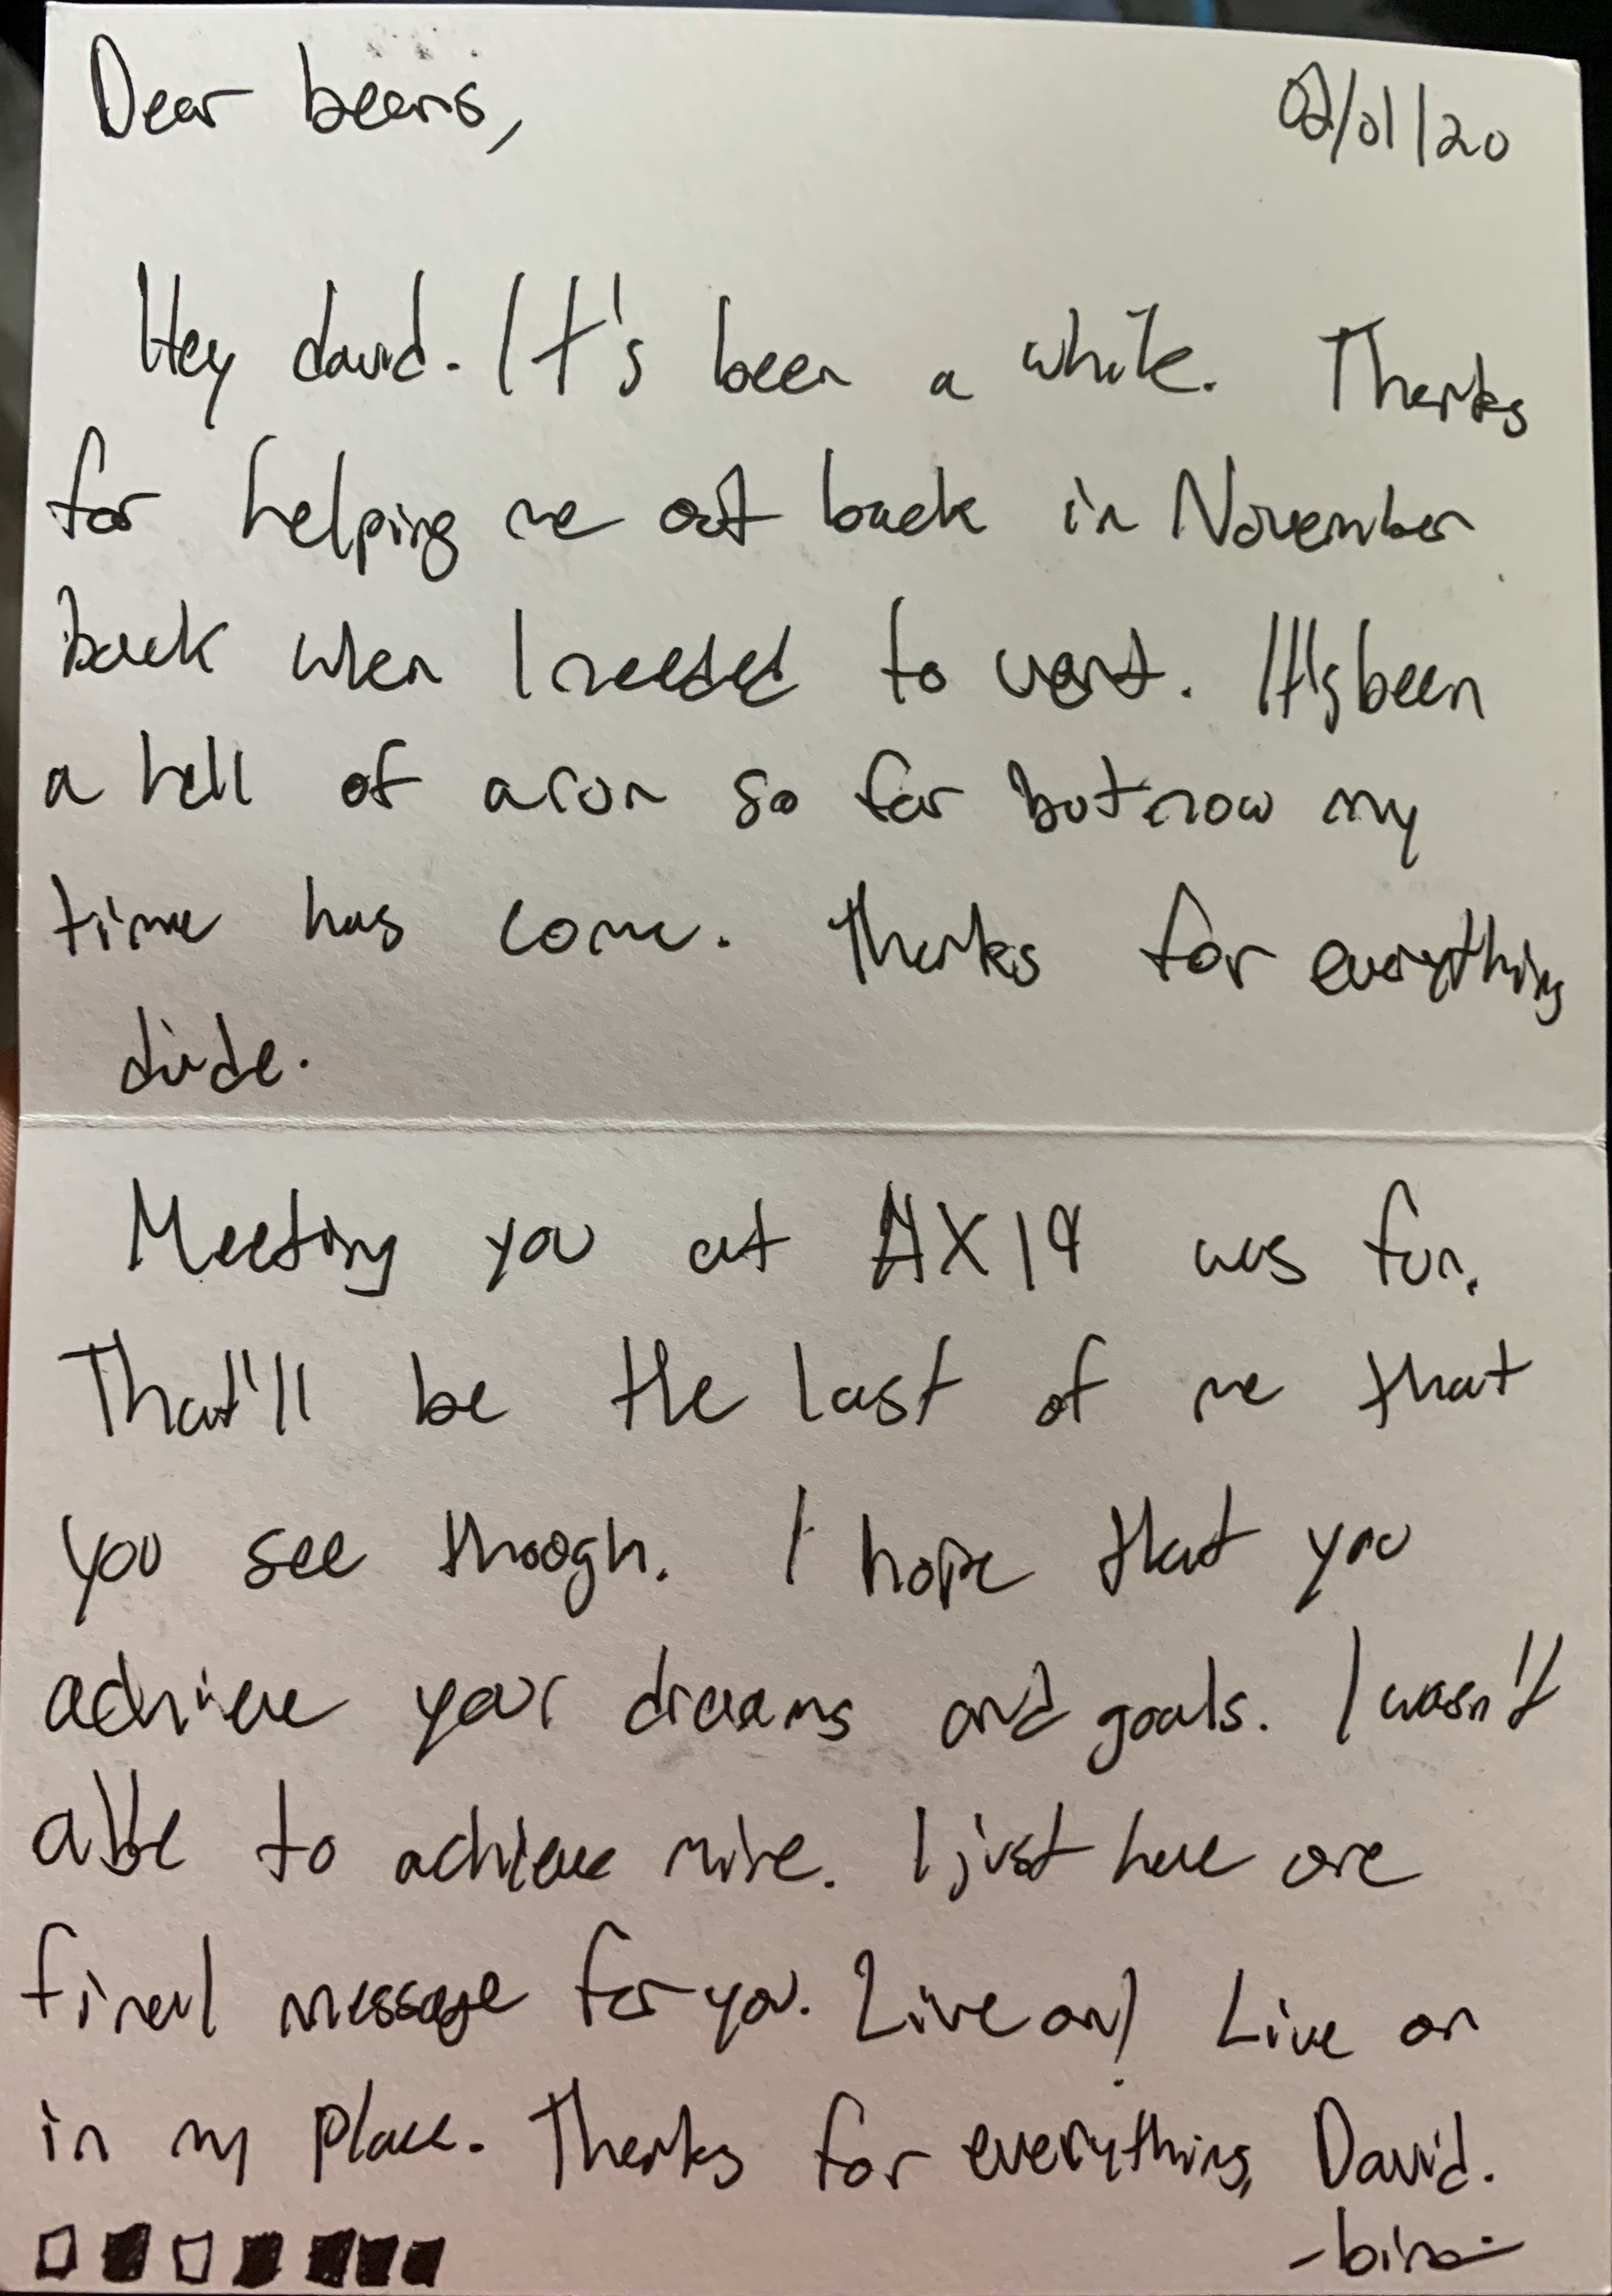 Dear beans,
02/01/20
Hey david. It's been a while. Thanks
for helping me out back in November
back when I needed to vent. It's been
a hell of a run so far but now my
time has come. Thanks for everything
dude.
Meeting you at AX19 was fun.
That'll be the last of me that
you see though. I hope that you
achieve your dreams and goals. I wasn't
able to achieve mine. I just have one
final message for you. Live on! Live on
in my place. Thanks for everything, David.